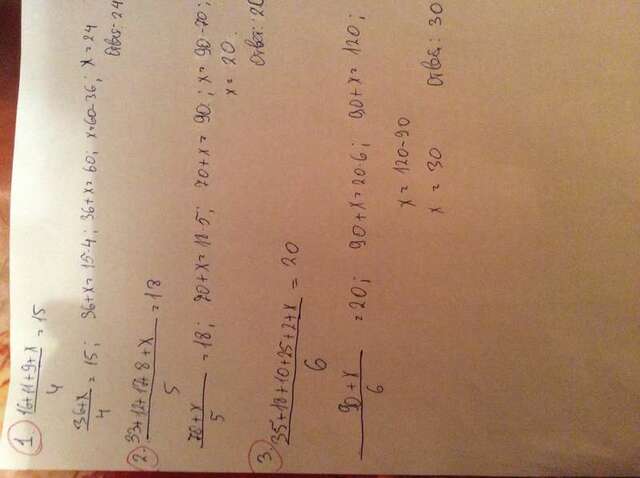 1. 16+11+9+x / 4 = 15
36+x / 4 = 15; 36+x=15·4; 36+x=60; x=60-36; x=24
Ответ: 24
2. 33+12+17+8+x / 5 = 18
70+x / 5 = 18; 70+x=18·5; 70+x=90; x=90-70;
x=20.
Ответ: 20
3. 35+18+10+25+2+x / 6 = 20
90+x / 6 = 20; 90+x=20·6; 90+x=120;
x=120-90
x=30 Ответ: 30